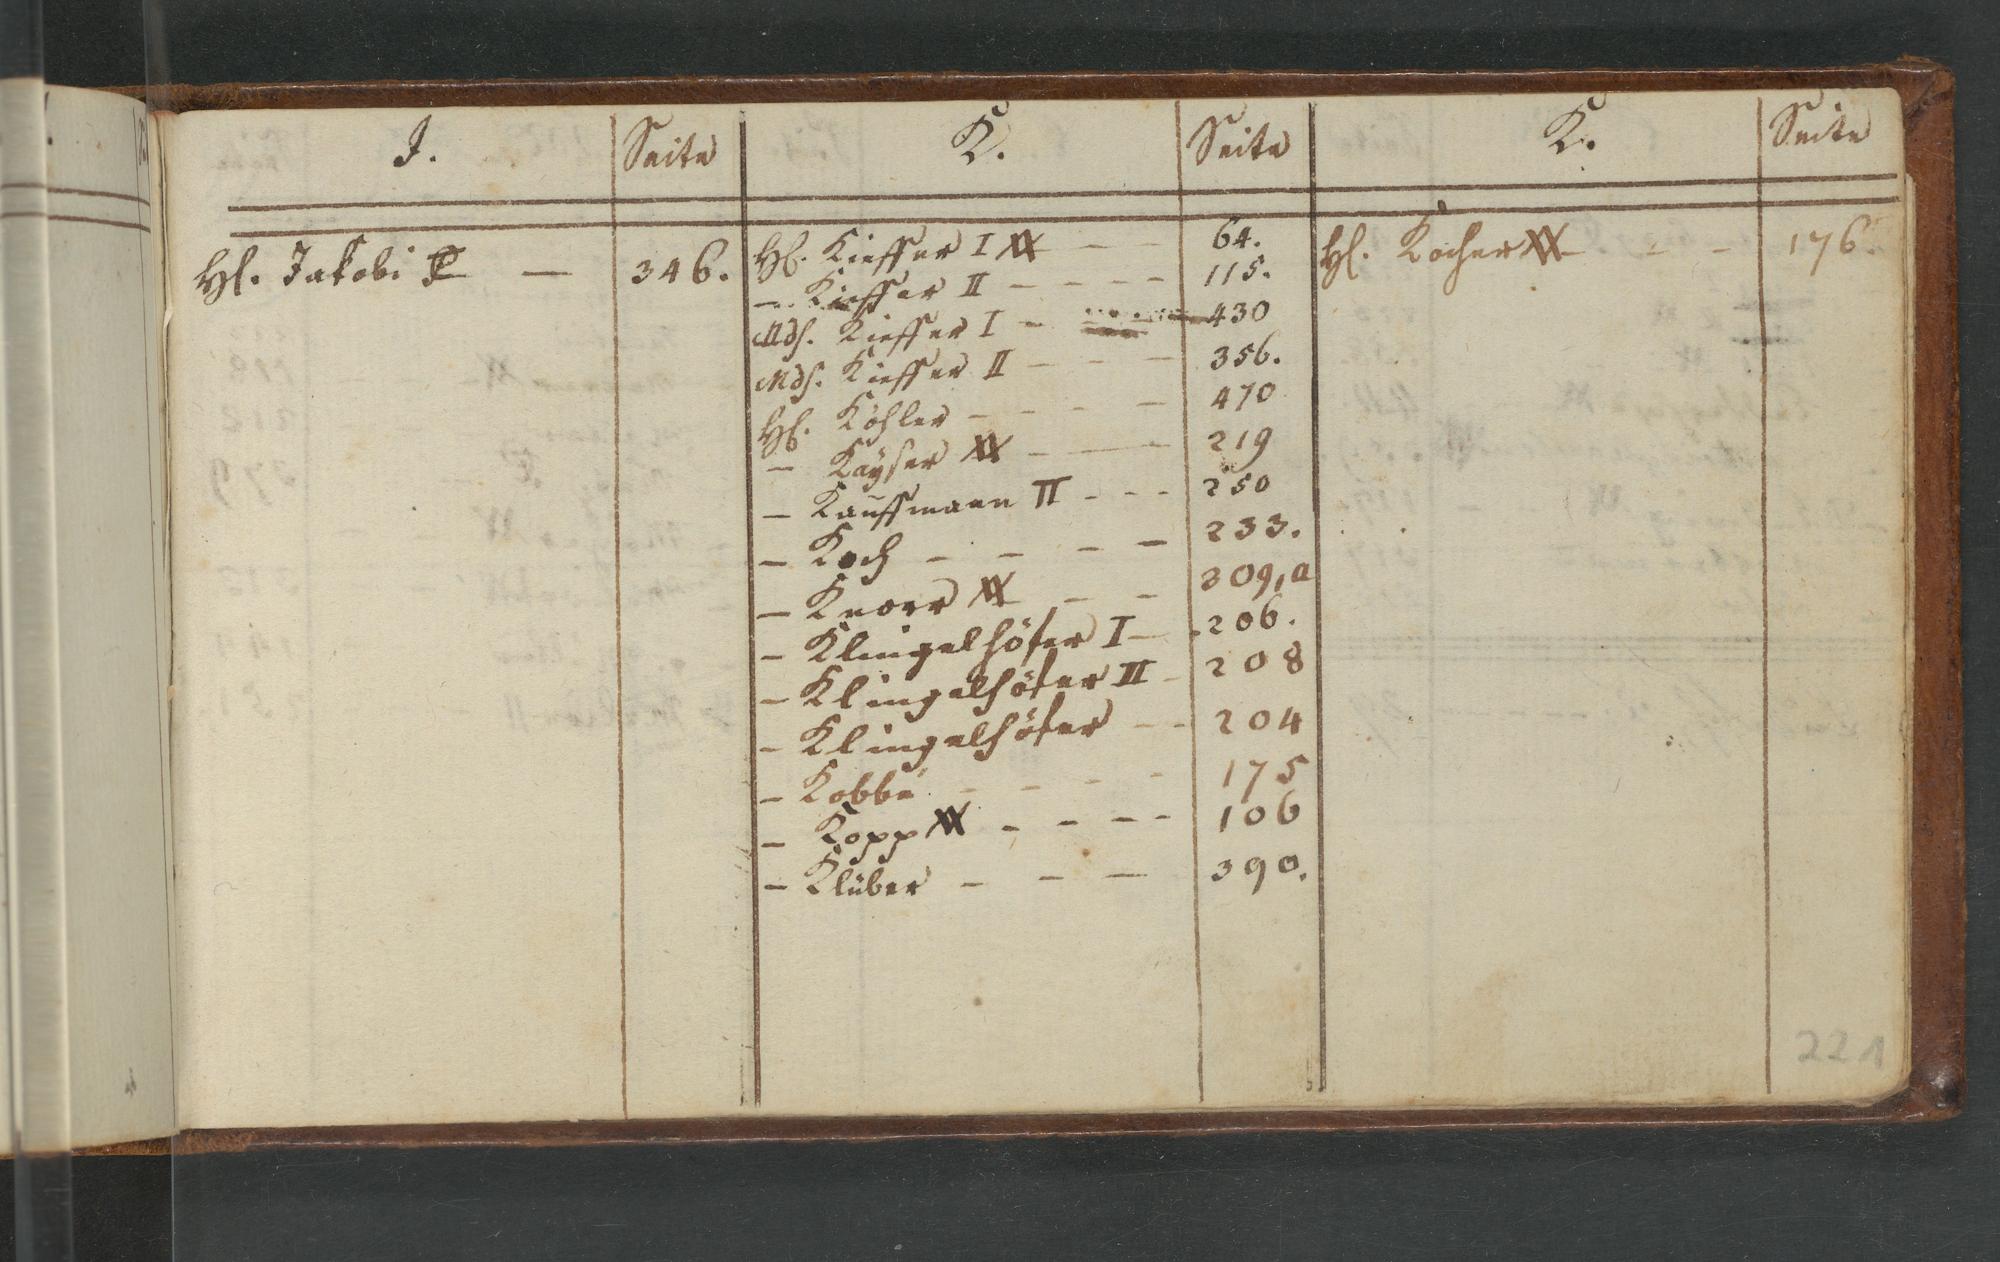 J. Seite
Hl. Jakobi — 346.
K. Seite
Hl. Kieffer I XX — — 64.
— Kieffer II — — — — 115.
Mds. Kieffer I — 430
Mds. Kieffer II — — — 356.
Hl. Köhler — — — — 470
— Kayser XX — — — 219
— Kauffmann II — — — 250
— Koch — — — — 233.
— Knorr XX — — 309,a
— Klingelhöfer I — 206.
— Klingelhöfer II — 208
— Klingelhöfer — — 204
— Kobbe — — — — 175
— Kopp XX — — — — 106
— Klüber — — — 390.
K. Seite
Hl. Kocher XX — — 176.
221